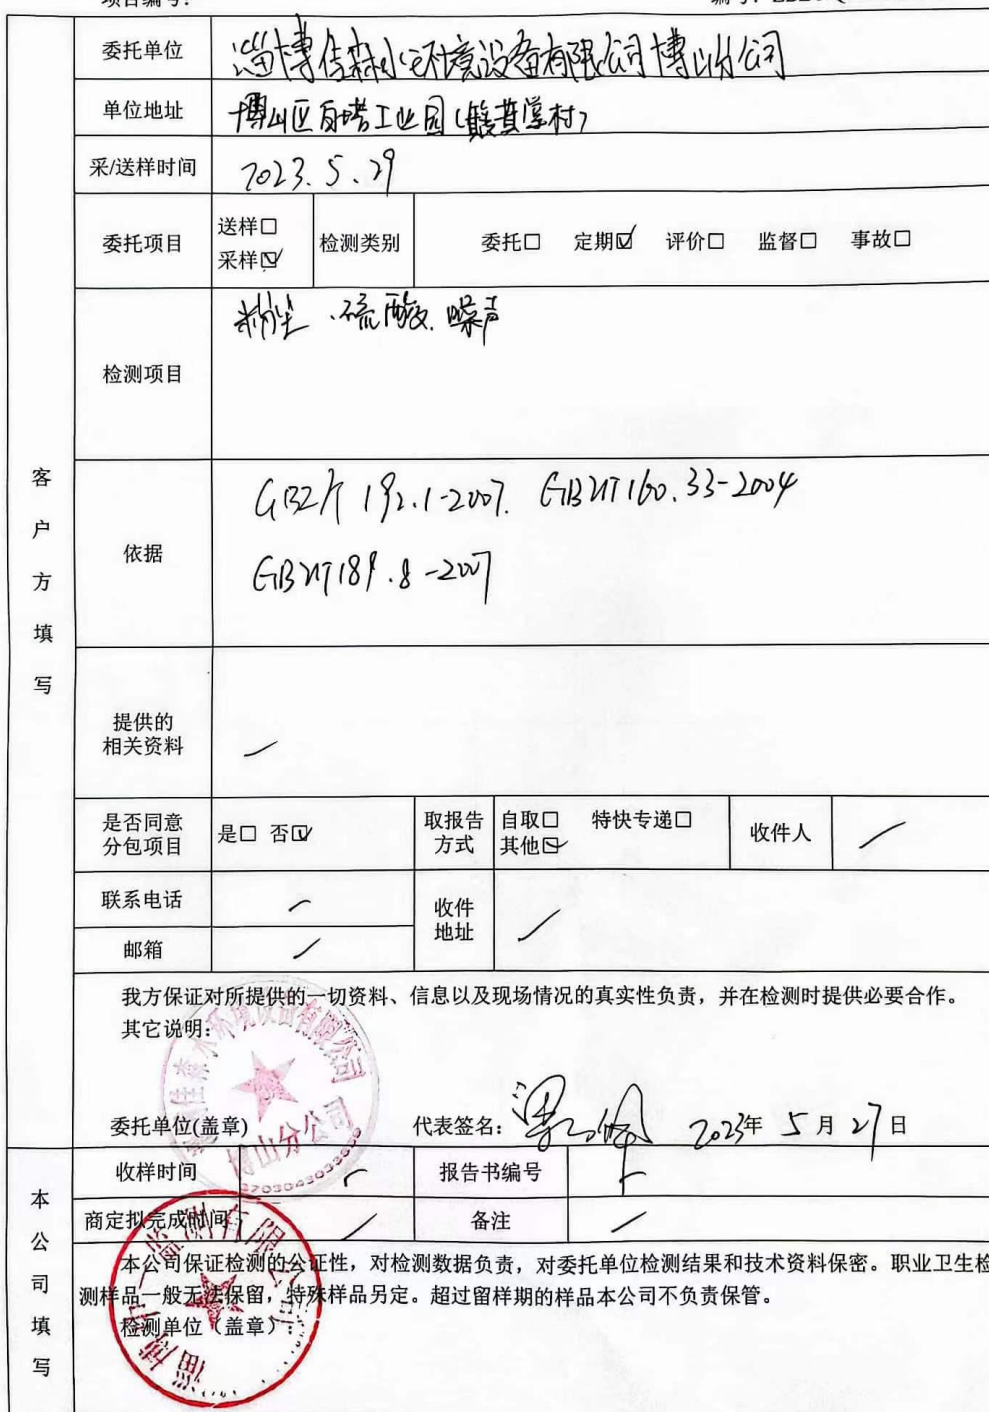 项目编号:
委托单位 淄博佳森水环境设备有限公司博山分公司
单位地址 博山区白塔工业园(簸萁掌村)
采/送样时间 2023.5.29
委托项目 送样□ 检测类别 委托□ 定期☑ 评价□ 监督□ 事故□
采样☑
检测项目 粉尘、硫酸、噪声
依据 GBZ/T 192.1-2007. GBZ/T160.33-2004
GBZ/T189.8-2007
提供的
相关资料 /
是否同意
分包项目 是□ 否☑ 取报告
方式 自取□ 特快专递□
其他☑ 收件人 /
联系电话 / 收件
地址 /
邮箱 /
我方保证对所提供的一切资料、信息以及现场情况的真实性负责,并在检测时提供必要合作。
其它说明:
佳森水环境设备有限公司
博山分公司
委托单位(盖章) 代表签名: 2023年 5月27日
收样时间 / 报告书编号 /
商定拟完成时间 / 备注 /
本公司保证检测的公证性,对检测数据负责,对委托单位检测结果和技术资料保密。职业卫生检
测样品一般无法保留,特殊样品另定。超过留样期的样品本公司不负责保管。
检测单位(盖章):
客户方填写
本公司填写